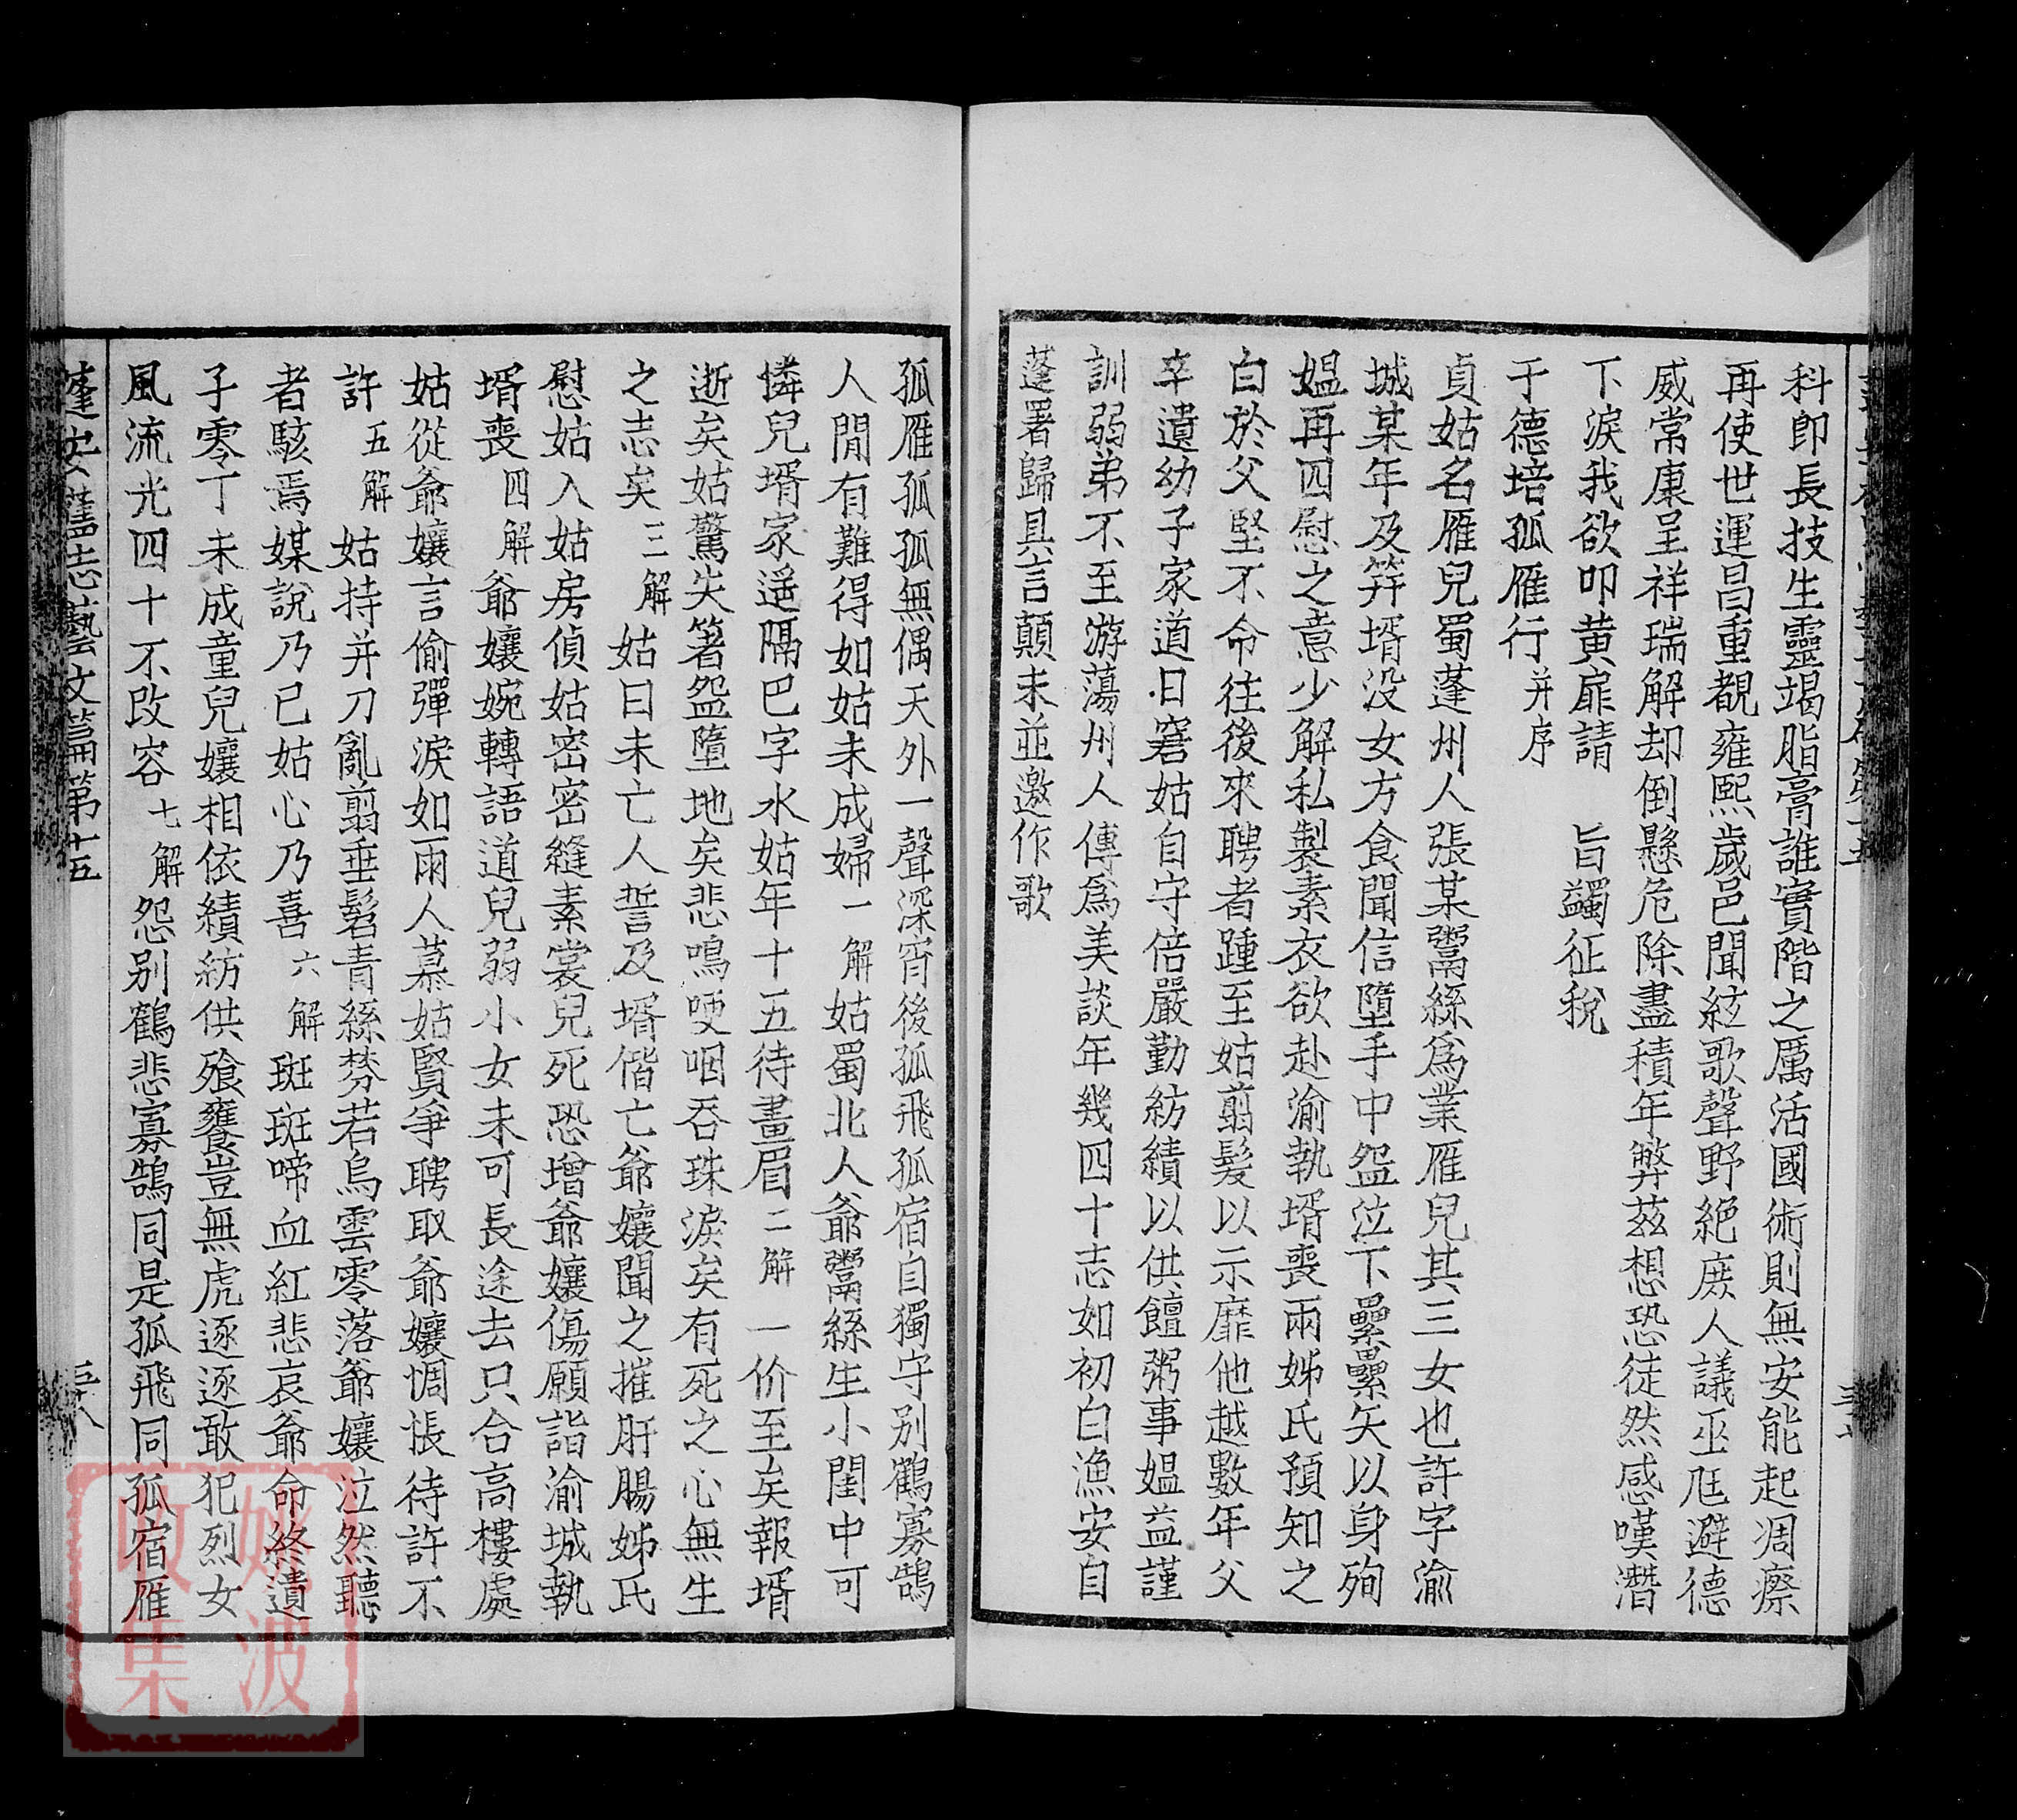 科即長技生靈竭脂膏誰實階之厲活國術則無安能起凋瘵
再使世運昌重覩雍熙歲邑聞絃歌聲野絕庶人議巫尪避德
威常康呈祥瑞解却倒懸危除盡積年弊茲想恐徒然感嘆潛
下淚我欲叩黄扉請 旨蠲征稅
于德培孤雁行并序
貞姑名雁兒蜀蓬州人張某鬻絲爲業雁兒其三女也許字渝
城某年及笄壻没女方食聞信墮手中盌泣下纍纍矢以身殉
媪再四慰之意少解私製素衣欲赴渝執壻喪兩姊氏預知之
白於父堅不令往後來聘者踵至姑翦髮以示靡他越數年父
卒遺幼子家道日窘姑自守倍嚴勤紡績以供饘粥事媪益謹
訓弱弟不至游蕩州人傳爲美談年幾四十志如初白漁安自
蓬署歸具言顛末並邀作歌
孤雁孤孤無偶天外一聲深宵後孤飛孤宿自獨守别鶴寡鵠
人間有難得如姑未成婦一解姑蜀北人爺鬻絲生小閨中可
憐兒壻家遥隔巴字水姑年十五待畫眉二解一价至矣報壻
逝矣姑驚失箸盌墮地矣悲鳴哽咽吞珠淚矣有死之心無生
之志矣三解姑曰未亡人誓及壻偕亡爺孃聞之摧肝腸姊氏
慰姑入姑房偵姑密密密縫素裳兒死恐增爺孃傷願詣渝城執
壻喪四解爺孃婉轉語道兒弱小女未可長途去只合高樓處
姑從爺孃言偷彈淚如雨人慕姑賢爭聘取爺孃惆悵待許不
許五解姑持并刀亂翦垂髫青絲棼若烏雲零落爺孃泣然聽
者駭焉媒說乃已姑心乃喜六解斑斑啼血紅悲哀爺命終遺
子零丁未成童兒孃相依績紡供飱饔豈無虎逐逐敢犯烈女
風流光四十不改容七解怨别鶴悲寡鵠同是孤飛同孤宿雁
蓬安舊志藝文篇第十五
五十八
姚波收集